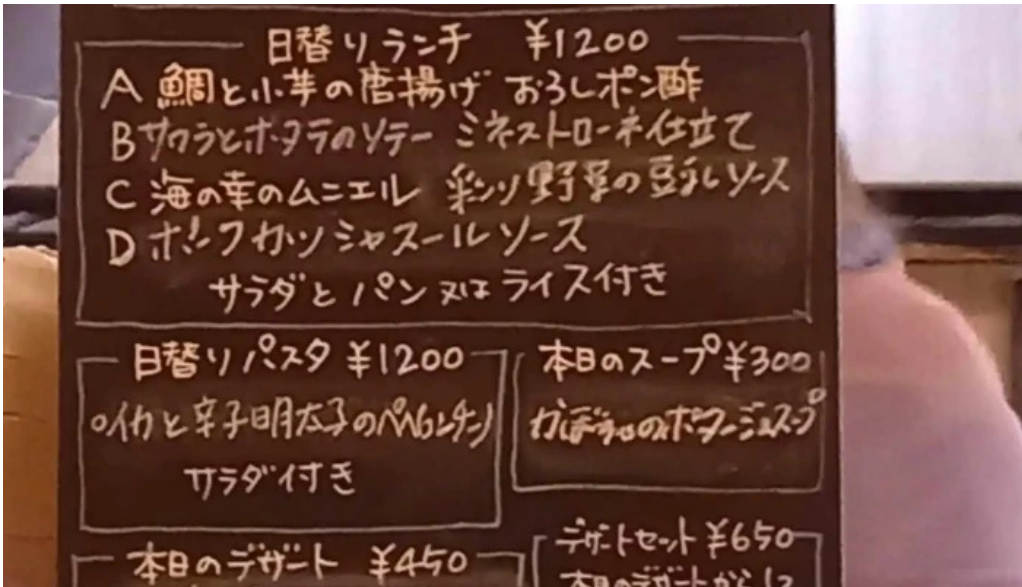 日替りランチ ¥1200
A 鯛と小芋の唐揚げ おろしポン酢
B サワラとホタテのソテー ミネストローネ仕立て
C 海の幸のムニエル 彩り野菜の豆乳ソース
D ポークカツ シャスールソース
サラダと パン 又は ライス付き
日替りパスタ ¥1200
○イカと辛子明太子のペペロンチーノ
サラダ付き
本日のスープ ¥300
かぼちゃのポタージュスープ
本日のデザート ¥450
デザートセット ¥650
本日のデザートから